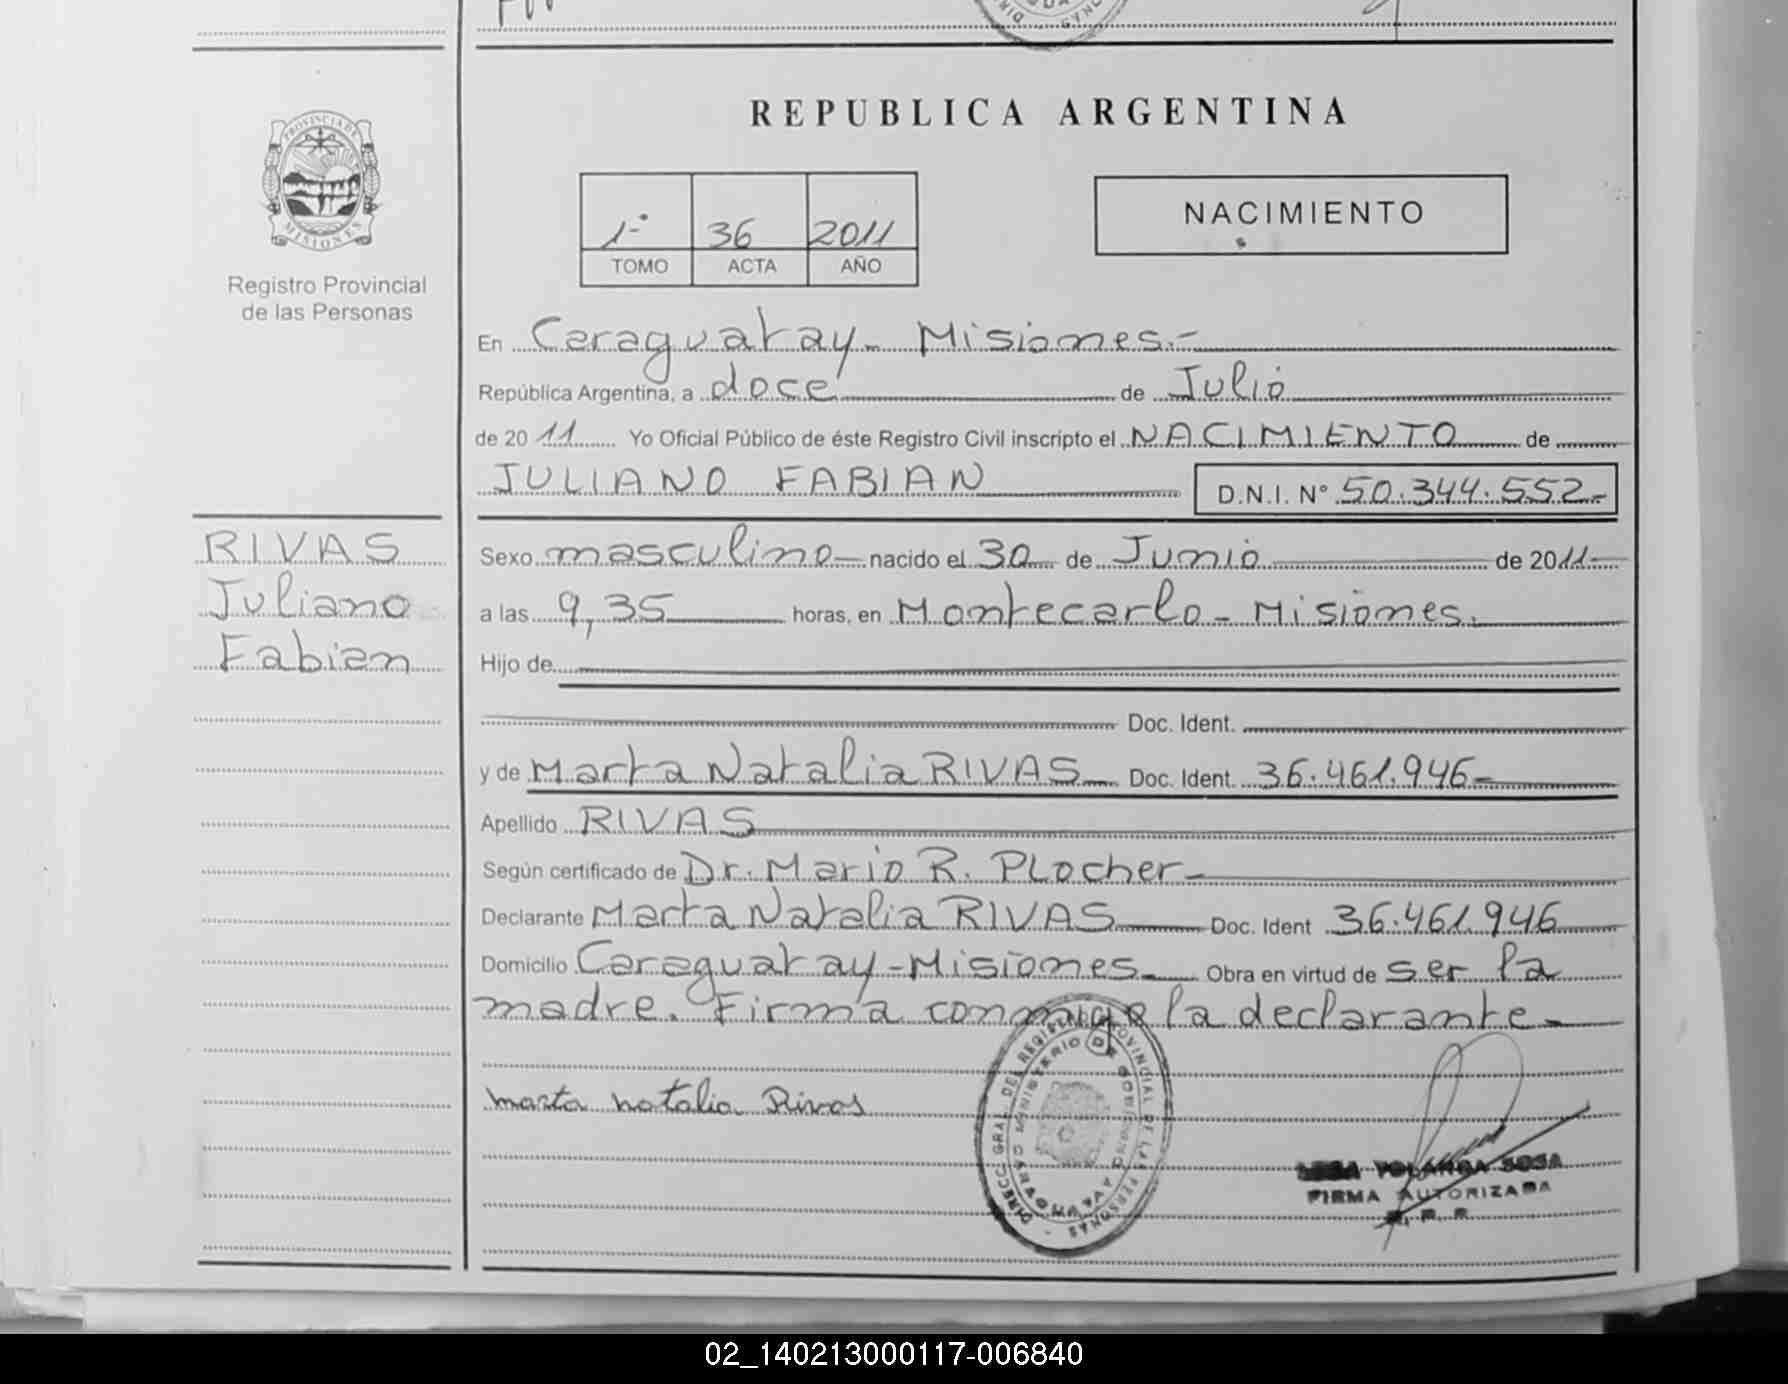 PROVINCIA DE
MISIONES
Registro Provincial
de las Personas
RIVAS
Juliano
Fabian
REPUBLICA ARGENTINA
1º 36 2011
TOMO ACTA AÑO
NACIMIENTO
En Caraguatay - Misiones.-
República Argentina, a doce de Julio
de 20 11 Yo Oficial Público de éste Registro Civil inscripto el NACIMIENTO de
JULIANO FABIAN D.N.I. Nº 50.344.552-
Sexo masculino nacido el 30 de Junio de 2011
a las 9,35 horas, en Montecarlo - Misiones.
Hijo de
Doc. Ident.
y de Marta Natalia RIVAS Doc. Ident. 36.461.946-
Apellido RIVAS
Según certificado de Dr. Mario R. Plocher-
Declarante Marta Natalia RIVAS Doc. Ident 36.461.946
Domicilio Caraguatay - Misiones Obra en virtud de ser la
madre. Firma conmigo la declarante-
DIRECC. GRAL. DEL REGISTRO PROVINCIAL DE LAS PERSONAS
MINISTERIO DE GOBIERNO
marta natalia Rivas
YOLANDA SOSA
FIRMA AUTORIZADA
02_140213000117-006840